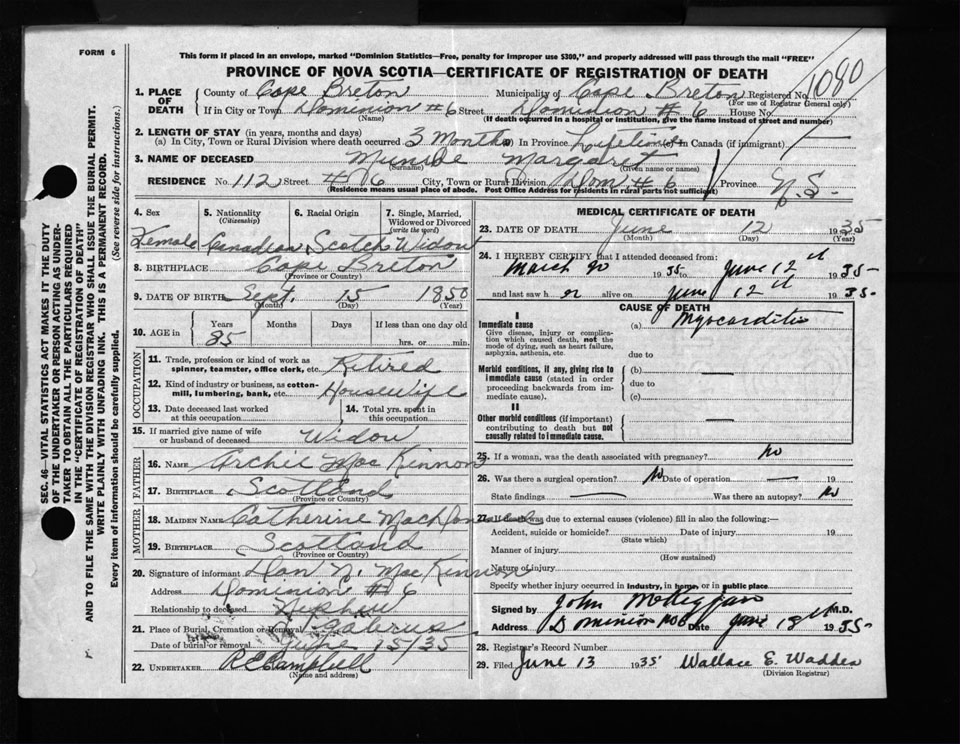 FORM 6
This form if placed in an envelope, marked "Dominion Statistics—Free, penalty for improper use $300," and properly addressed will pass through the mail "FREE"
PROVINCE OF NOVA SCOTIA—CERTIFICATE OF REGISTRATION OF DEATH
1090
1. PLACE OF DEATH { County of Cape Breton Municipality of Cape Breton Registered No.
(For use of Registrar General only)
If in City or Town Dominion #6 Street Dominion #6 House No.
(Name) (If death occurred in a hospital or institution, give the name instead of street and number)
2. LENGTH OF STAY (in years, months and days)
(a) In City, Town or Rural Division where death occurred 3 Months (b) In Province Lifetime (c) In Canada (if immigrant)
3. NAME OF DECEASED Munroe Margaret
(Surname) (Given name or names)
RESIDENCE No. 112 Street #6 City, Town or Rural Division Dom. #6 Province N.S.
(Residence means usual place of abode. Post Office Address for residents in rural parts not sufficient)
4. Sex Female
5. Nationality (Citizenship) Canadian
6. Racial Origin Scotch
7. Single, Married, Widowed or Divorced (write the word) Widow
8. BIRTHPLACE Cape Breton
(Province or Country)
9. DATE OF BIRTH Sept. 15 1850
(Month) (Day) (Year)
10. AGE in { Years Months Days If less than one day old
85 hrs. or min.
OCCUPATION
11. Trade, profession or kind of work as spinner, teamster, office clerk, etc. Retired
12. Kind of industry or business, as cotton-mill, lumbering, bank, etc. Housewife
13. Date deceased last worked at this occupation
14. Total yrs. spent in this occupation
15. If married give name of wife or husband of deceased Widow
FATHER
16. NAME Archie MacKinnon
17. BIRTHPLACE Scotland
(Province or Country)
MOTHER
18. MAIDEN NAME Catherine
19. BIRTHPLACE Scotland
(Province or Country)
20. Signature of informant Dan N. MacKinnon
Address Dominion #6
Relationship to deceased Nephew
21. Place of Burial, Cremation or Removal Gabarus
Date of burial or removal June 15/35
22. UNDERTAKER R C Campbell
(Name and address)
MEDICAL CERTIFICATE OF DEATH
23. DATE OF DEATH June 12 1935
(Month) (Day) (Year)
24. I HEREBY CERTIFY that I attended deceased from:
March 20 1935 to June 12th 1935
and last saw her alive on June 12th 1935
CAUSE OF DEATH
I
Immediate cause (a) Myocarditis
Give disease, injury or complication which caused death, not the mode of dying, such as heart failure, asphyxia, asthenia, etc.
due to
Morbid conditions, if any, giving rise to immediate cause (stated in order proceeding backwards from immediate cause).
(b) —
due to
(c)
II
Other morbid conditions (if important) contributing to death but not causally related to immediate cause. —
25. If a woman, was the death associated with pregnancy? No
26. Was there a surgical operation? No Date of operation — 19
State findings — Was there an autopsy? No
27. If death was due to external causes (violence) fill in also the following:—
Accident, suicide or homicide? Date of injury 19
(State which)
Manner of injury
(How sustained)
Nature of injury
Specify whether injury occurred in industry, in home, or in public place
Signed by John M.D.
Address Dominion No 6 Date June 18th 1935
28. Registrar's Record Number
29. Filed June 13 1935 Wallace E. Wadden
(Division Registrar)
SEC. 46—VITAL STATISTICS ACT MAKES IT THE DUTY
OF THE UNDERTAKER OR PERSON ACTING AS UNDER-
TAKER TO OBTAIN ALL THE PARTICULARS REQUIRED
IN THE "CERTIFICATE OF REGISTRATION OF DEATH"
AND TO FILE THE SAME WITH THE DIVISION REGISTRAR WHO SHALL ISSUE THE BURIAL PERMIT.
WRITE PLAINLY WITH UNFADING INK. THIS IS A PERMANENT RECORD.
Every item of information should be carefully supplied. (See reverse side for instructions.)